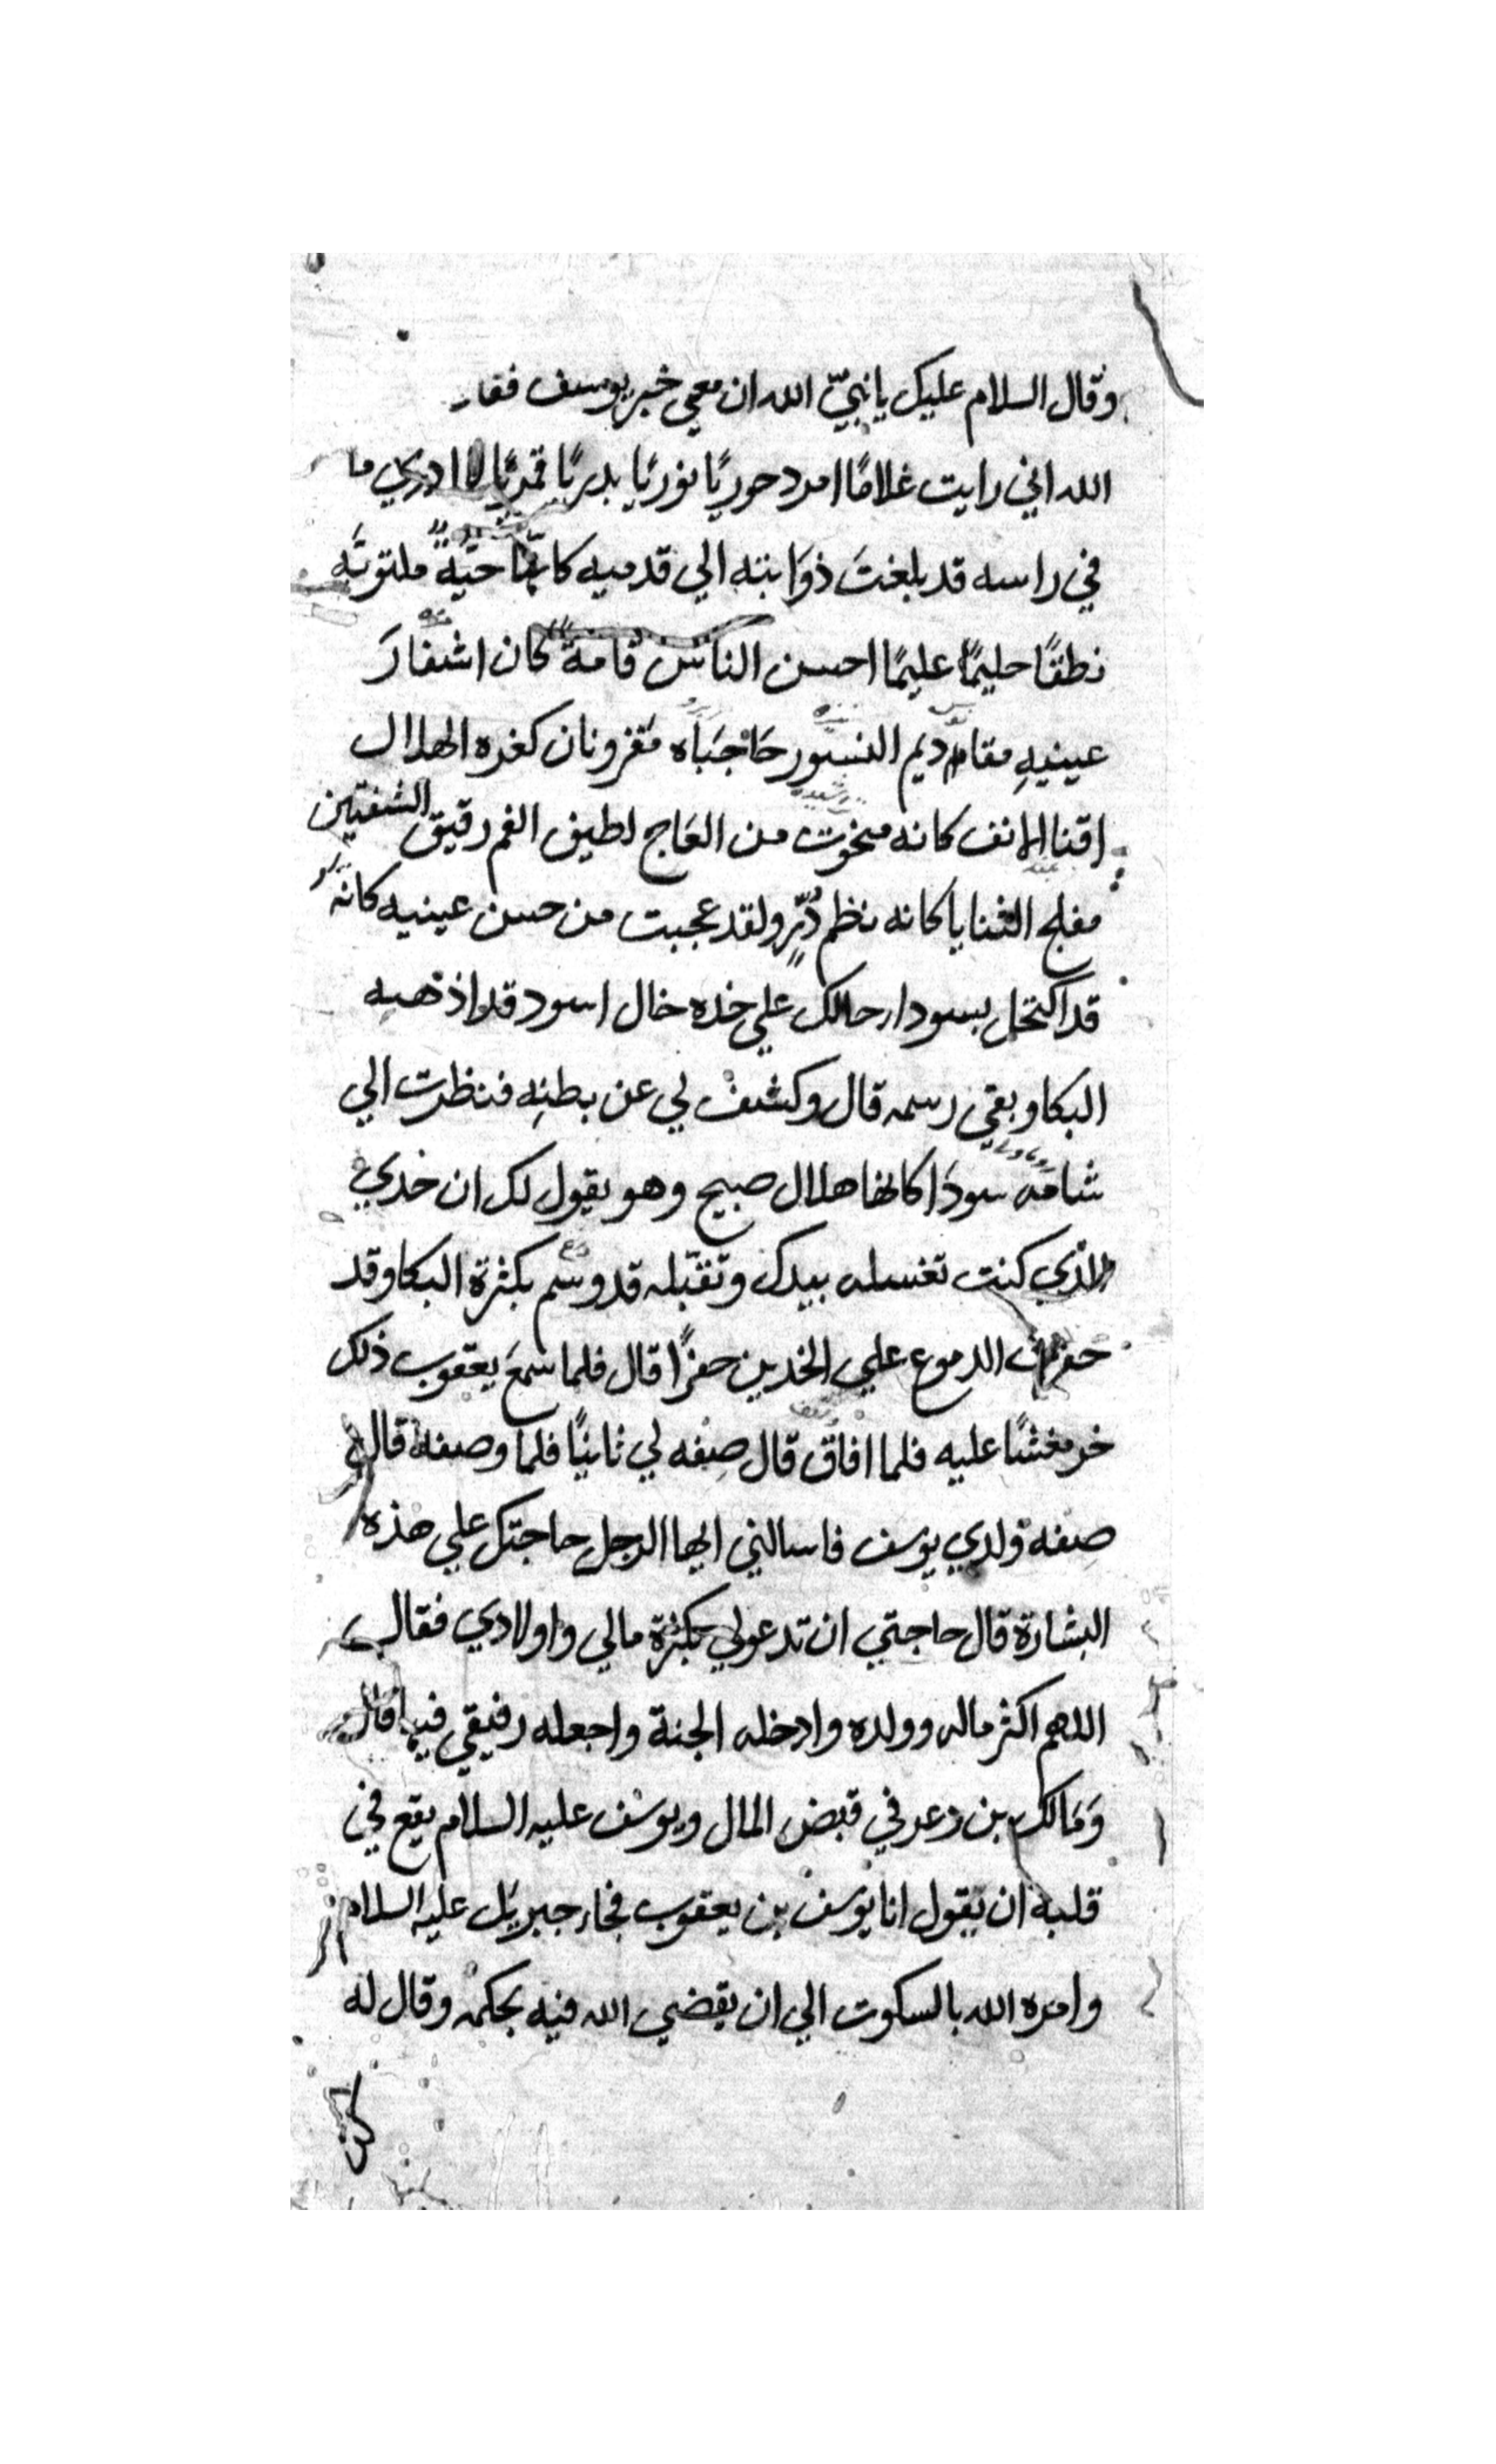 وقال السلام عليك يا نبيّ الله ان معي خبر يوسف فقار
الله اني رايت غلامًا امرد حوريًا نوريًا بدريًا قمريًا لا ادري ما
في راسه قد بلغت ذوابته الي قدميه كانها حيةً ملتوية
نطقًا حليمًا عليمًا احسن الناس قامةً كان اشفارَ
عينيهِ مقاديم النسور حَاجبَاه مَقرونان كغره الهلال
اقنا الانف كانه منحوت من العَاج لطيف الفم رقيق الشفتين
مفلج الثنايا كانه نظم دُرٍّ ولقد عجبت من حسن عينيه كانه
قد اكتحل بسودا حالك علي خده خال اسود قد اذهبه
البكا وبقي رسمه قال وكشف لي عن بطنِه فنظرت الي
شامه سودَا كانها هلال صبيح وهو يقول لك ان خدي
الذي كنت تغسله بيدك وتقبّله قد وسم بكثرة البكا وقد
حفرت الدموع علي الخدين حفرًا قال فلما سمعَ يعقوب ذلك
خر مغشيًا عليه فلما افاق قال صِفه لي ثانيًا فلما وصفه قال
صِفه ولدي يوسف فاسالني ايها الرجل حاجتك علي هذه
البشارة قال حاجتي ان تدعو لي بكثرة مالي واولادي فقال
اللهم اكثر ماله وولده وادخله الجنة واجعله رفيقي فيها قال
وَمَالك بن ذعر في قبض المال ويوسف عليه السلام يقع في
قلبه ان يقول انا يوسف بن يعقوب فجاء جبريل عليه السلام
وامره الله بالسكوت الي ان يقضي الله فيه بحكمه وقال له